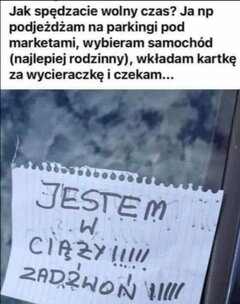 Jak spędzacie wolny czas? Ja np
podjeżdżam na parkingi pod
marketami, wybieram samochód
(najlepiej rodzinny), wkładam kartkę
za wycieraczkę i czekam...
JESTEM
W
CIĄŻY!!!!!
ZADZWOŃ!!!!!